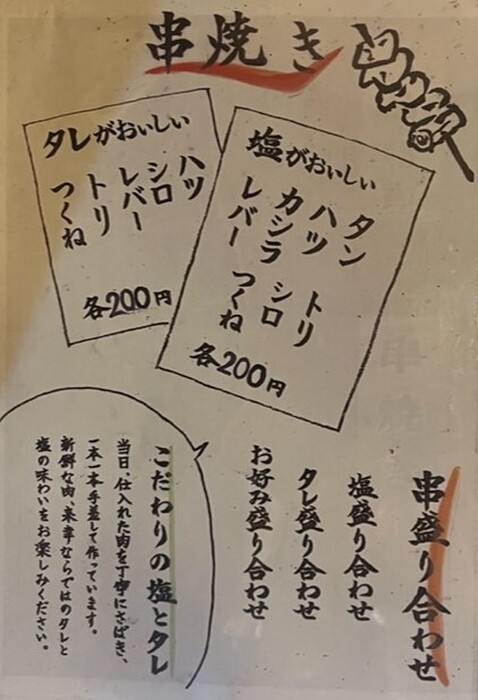 串焼き
タレがおいしい
ハツ
シロ
レバー
トリ
つくね
各200円
塩がおいしい
タン
ハツ トリ
カシラ シロ
レバー つくね
各200円
串盛り合わせ
塩盛り合わせ
タレ盛り合わせ
お好み盛り合わせ
こだわりの塩とタレ
当日、仕入れた肉を丁寧にさばき、
一本一本手差しで作っています。
新鮮な肉、来幸ならではのタレと
塩の味わいをお楽しみください。